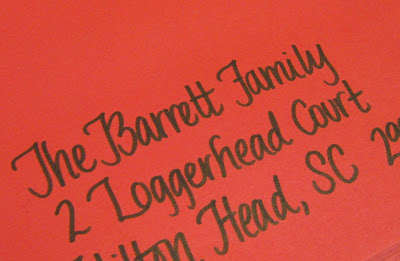 The Barrett Family
2 Loggerhead Court
Hilton Head, SC 29